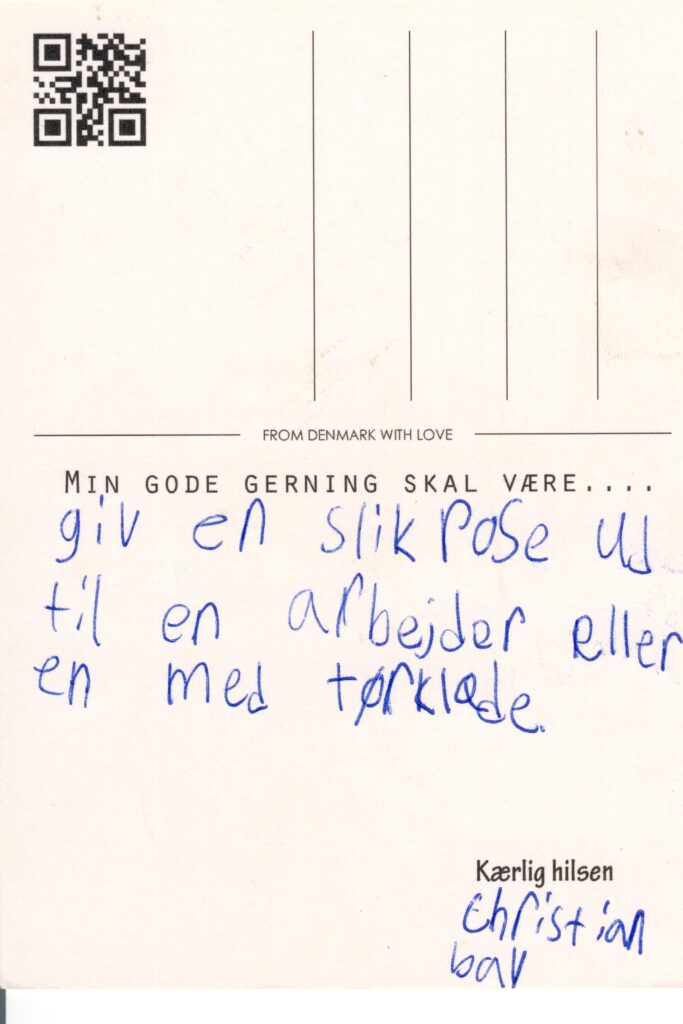 FROM DENMARK WITH LOVE
MIN GODE GERNING SKAL VÆRE....
giv en slikpose ud
til en arbejder eller
en med tørklæde.
Kærlig hilsen
christian
bav